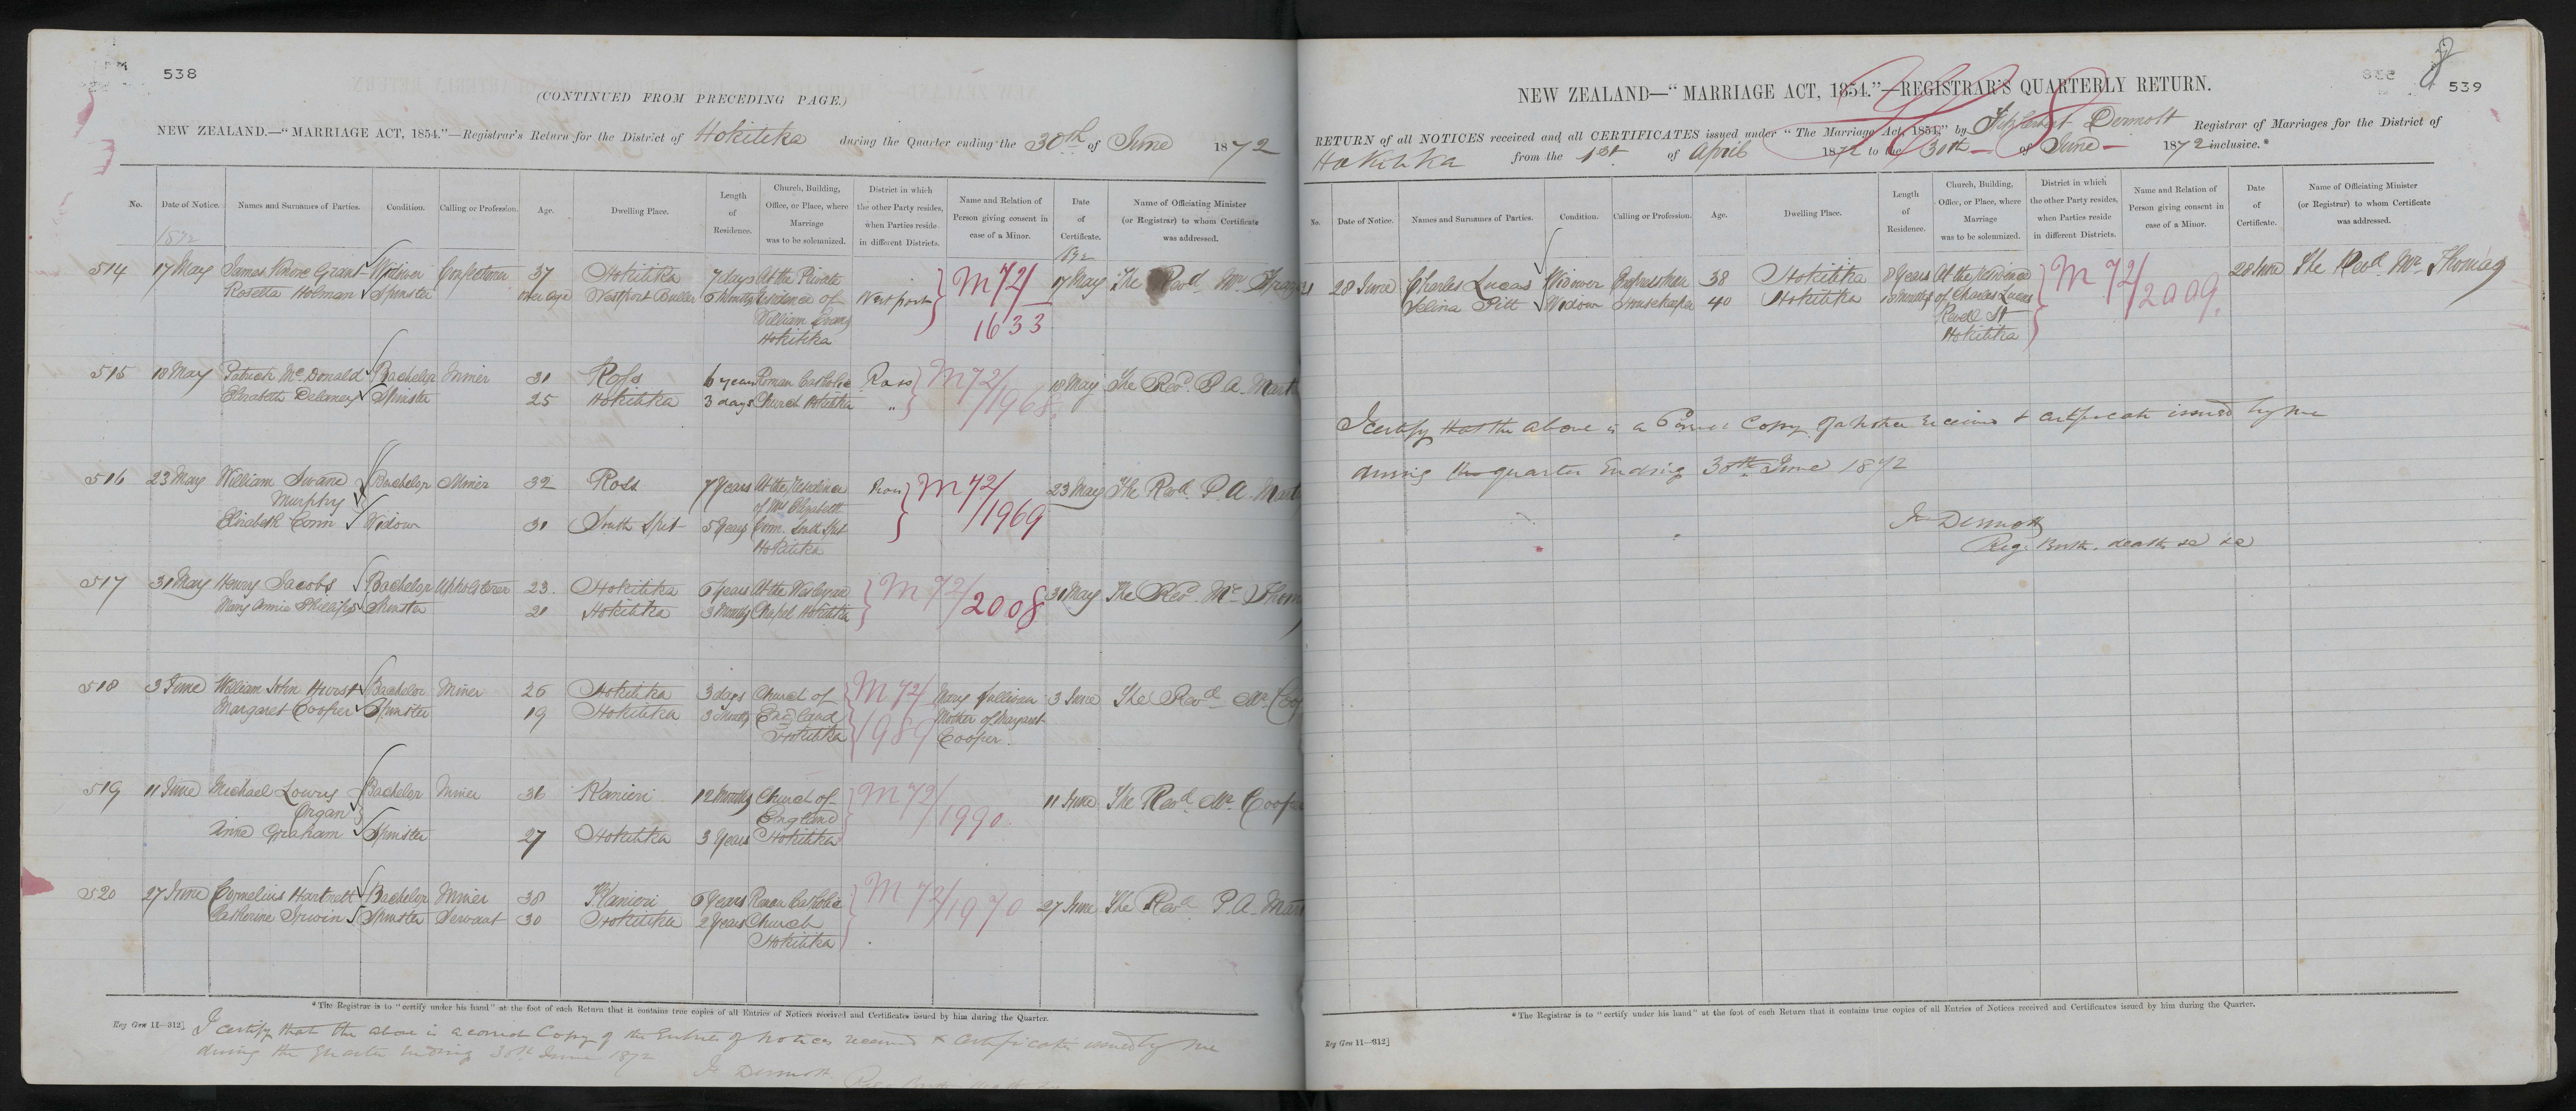 538
(CONTINUED FROM PRECEDING PAGE.)
NEW ZEALAND.—"MARRIAGE ACT, 1854."—Registrar's Return for the District of Hokitika during the Quarter ending the 30th of June 1872
No. Date of Notice. Names and Surnames of Parties. Condition. Calling or Profession. Age. Dwelling Place. Length of Residence. Church, Building, Office, or Place, where Marriage was to be solemnized. District in which the other Party resides, when Parties reside in different Districts. Name and Relation of Person giving consent in case of a Minor. Date of Certificate. Name of Officiating Minister (or Registrar) to whom Certificate was addressed.
1872 1872
514 17 May James Grant Widower Confectioner 37 Hokitika 7 days At the Private M72/ 17 May The Revd Mr
Rosetta Holman Spinster over age Westport Buller 6 Months residence of Westport
William Grant 1633
Hokitika
515 18 May Patrick McDonald Bachelor Miner 31 Ross 6 years Roman Catholic Ross M72/ 18 May The Revd P A
Elizabeth Delaney Spinster 25 Hokitika 3 days Church Hokitika " 1968
516 23 May William Bachelor Miner 32 Ross 7 Years At the residence Ross M72/ 23 May The Revd P A
Murphy of Mrs Elizabeth
Elizabeth Conn Widow 31 South Spit 5 Years Conn South Spit 1969
Hokitika
517 31 May Henry Jacobs Bachelor Upholsterer 23 Hokitika 6 years At the Wesleyan M72/ 31 May The Revd Mr Thom
Mary Annie Phillips Spinster 21 Hokitika 3 Months Chapel Hokitika 2008
518 3 June William John Hurst Bachelor Miner 26 Hokitika 3 days Church of M72/ Mary Sullivan 3 June The Revd Mr Coo
Margaret Cooper Spinster 19 Hokitika 3 Months England 1989 Mother of Margaret
Hokitika Cooper.
519 11 June Michael Lowry Bachelor Miner 36 Kanieri 12 Months Church of M72/ 11 June The Revd Mr Coope
Organ England 1990
Anne Graham Spinster 27 Hokitika 3 Years Hokitika
520 27 June Cornelius Hartnett Bachelor Miner 38 Kanieri 6 Years Roman Catholic M72/1970 27 June The Revd P. A. Mar
Catherine Irwin Spinster Servant 30 Hokitika 2 Years Church
Hokitika
*The Registrar is to "certify under his hand" at the foot of each Return that it contains true copies of all Entries of Notices received and Certificates issued by him during the Quarter.
Reg Gen 11—312]
I certify that the above is a correct Copy of the Entries of notices received & Certificates issued by me
during the quarter ending 30th June 1872
Fr Dermott
539
NEW ZEALAND—"MARRIAGE ACT, 1854."—REGISTRAR'S QUARTERLY RETURN.
RETURN of all NOTICES received and all CERTIFICATES issued under "The Marriage Act, 1854," by Fitzherbert Dermott Registrar of Marriages for the District of
Hokitika from the 1st of April 1872 to the 30th of June 1872 inclusive.*
No. Date of Notice. Names and Surnames of Parties. Condition. Calling or Profession. Age. Dwelling Place. Length of Residence. Church, Building, Office, or Place, where Marriage was to be solemnized. District in which the other Party resides, when Parties reside in different Districts. Name and Relation of Person giving consent in case of a Minor. Date of Certificate. Name of Officiating Minister (or Registrar) to whom Certificate was addressed.
21 28 June Charles Lucas Widower 38 Hokitika 8 Years At the residence M72/ 28 June The Revd Mr Thomas
Pitt Widow Housekeeper 40 Hokitika 18 Months of Charles Lucas 2009
Revell St
Hokitika
I certify that the above is a Correct Copy of notice received & certificate issued by me
during the quarter Ending 30th June 1872
Fr Dermott
Reg. Birth, death &c &c
*The Registrar is to "certify under his hand" at the foot of each Return that it contains true copies of all Entries of Notices received and Certificates issued by him during the Quarter.
Reg Gen 11—312]